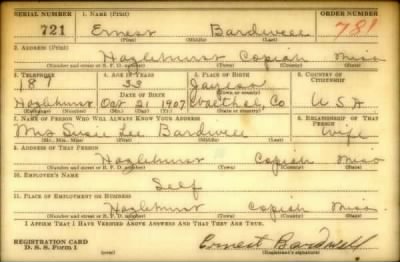 SERIAL NUMBER 1. NAME (Print) ORDER NUMBER
721 Ernest Bardwell 781
(First) (Middle) (Last)
2. ADDRESS (Print)
Hazlehurst Copiah Miss
(Number and street or R. F. D. number) (Town) (County) (State)
3. TELEPHONE 4. AGE IN YEARS 5. PLACE OF BIRTH 6. COUNTRY OF CITIZENSHIP
187 33
DATE OF BIRTH (Town or county)
Hazlehurst Oct 21 1907 Co U S A
(Exchange) (Number) (Mo.) (Day) (Yr.) (State or country)
7. NAME OF PERSON WHO WILL ALWAYS KNOW YOUR ADDRESS 8. RELATIONSHIP OF THAT PERSON
Mrs Susie Lee Bardwell Wife
(Mr., Mrs., Miss) (First) (Middle) (Last)
9. ADDRESS OF THAT PERSON
Hazlehurst Copiah Miss
(Number and street or R. F. D. number) (Town) (County) (State)
10. EMPLOYER'S NAME
Self
11. PLACE OF EMPLOYMENT OR BUSINESS
Hazlehurst Copiah Miss
(Number and street or R. F. D. number) (Town) (County) (State)
I AFFIRM THAT I HAVE VERIFIED ABOVE ANSWERS AND THAT THEY ARE TRUE.
REGISTRATION CARD
D. S. S. Form 1 Ernest Bardwell
(Registrant's signature)